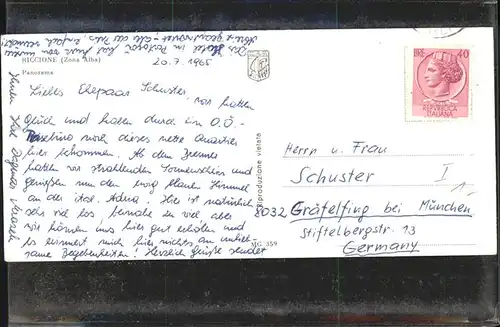 RICCIONE (Zona Alba)
Panorama
20.7.1965
Liebes Ehepaar Schuster,
wir hatten
Glück und haben durch ein O.Ö.-
Reisebüro noch dieses nette Quartier
hier bekommen. Ab dem Brenner
hatten wir strahlenden Sonnenschein und
genießen nun den ewig blauen Himmel
an der ital. Adria. Hier ist natürlich
sehr viel los, beinahe zu viel, aber
wir können uns hier gut erholen und
es erinnert mich hier nichts an unlieb-
same Begebenheiten! Herzlich grüße sendet
Riproduzione vietata
MG 359
LIRE 40
REPVBBLICA
ITALIANA
Herrn u. Frau
Schuster
I
8032 Gräfelfing bei München
Stiftelbergstr. 13
Germany